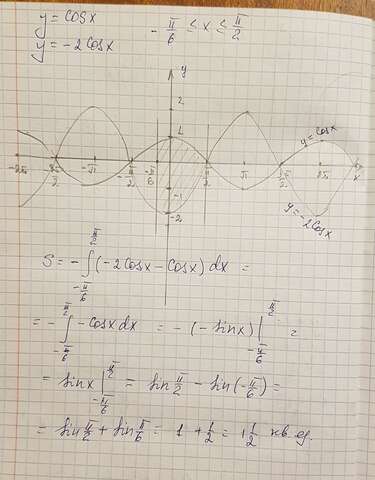 y = cosx   - π/6 ≤ x ≤ π/2
y = -2cosx
y
2
1
y = cosx
-2π -3π/2 -π -π/2 -π/6 π/2 π 3π/2 2π x
-1
-2
y = -2cosx
S = - ∫_{-π/6}^{π/2} (-2cosx - cosx) dx =
= - ∫_{-π/6}^{π/2} -cosx dx = - (-sinx) |_{-π/6}^{π/2} =
= sinx |_{-π/6}^{π/2} = sin π/2 - sin(-π/6) =
= sin π/2 + sin π/6 = 1 + 1/2 = 1 1/2 кв ед.